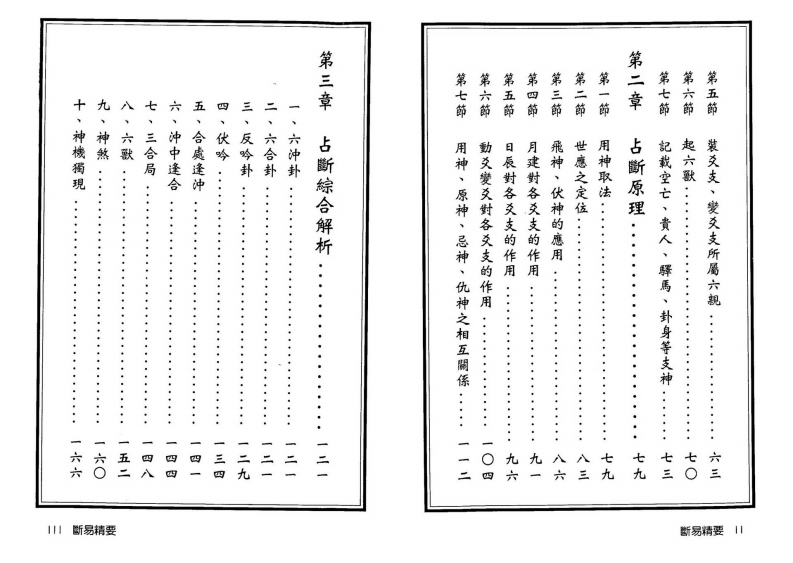 第五節 裝爻支、變爻支所屬六親……六三
第六節 起六獸……七〇
第七節 記載空亡、貴人、驛馬、卦身等支神……七三
第二章 占斷原理……七九
第一節 用神取法……七九
第二節 世應之定位……八三
第三節 飛神、伏神的應用……八六
第四節 月建對各爻支的作用……九一
第五節 日辰對各爻支的作用……九六
第六節 動爻變爻對各爻支的作用……一〇四
第七節 用神、原神、忌神、仇神之相互關係……一一二
斷易精要 11
第三章 占斷綜合解析……一二一
一、六沖卦……一二一
二、六合卦……一二一
三、反吟卦……一二九
四、伏吟……一三四
五、合處逢沖……一四一
六、沖中逢合……一四四
七、三合局……一四八
八、六獸……一五二
九、神煞……一六〇
十、神機獨現……一六六
111 斷易精要